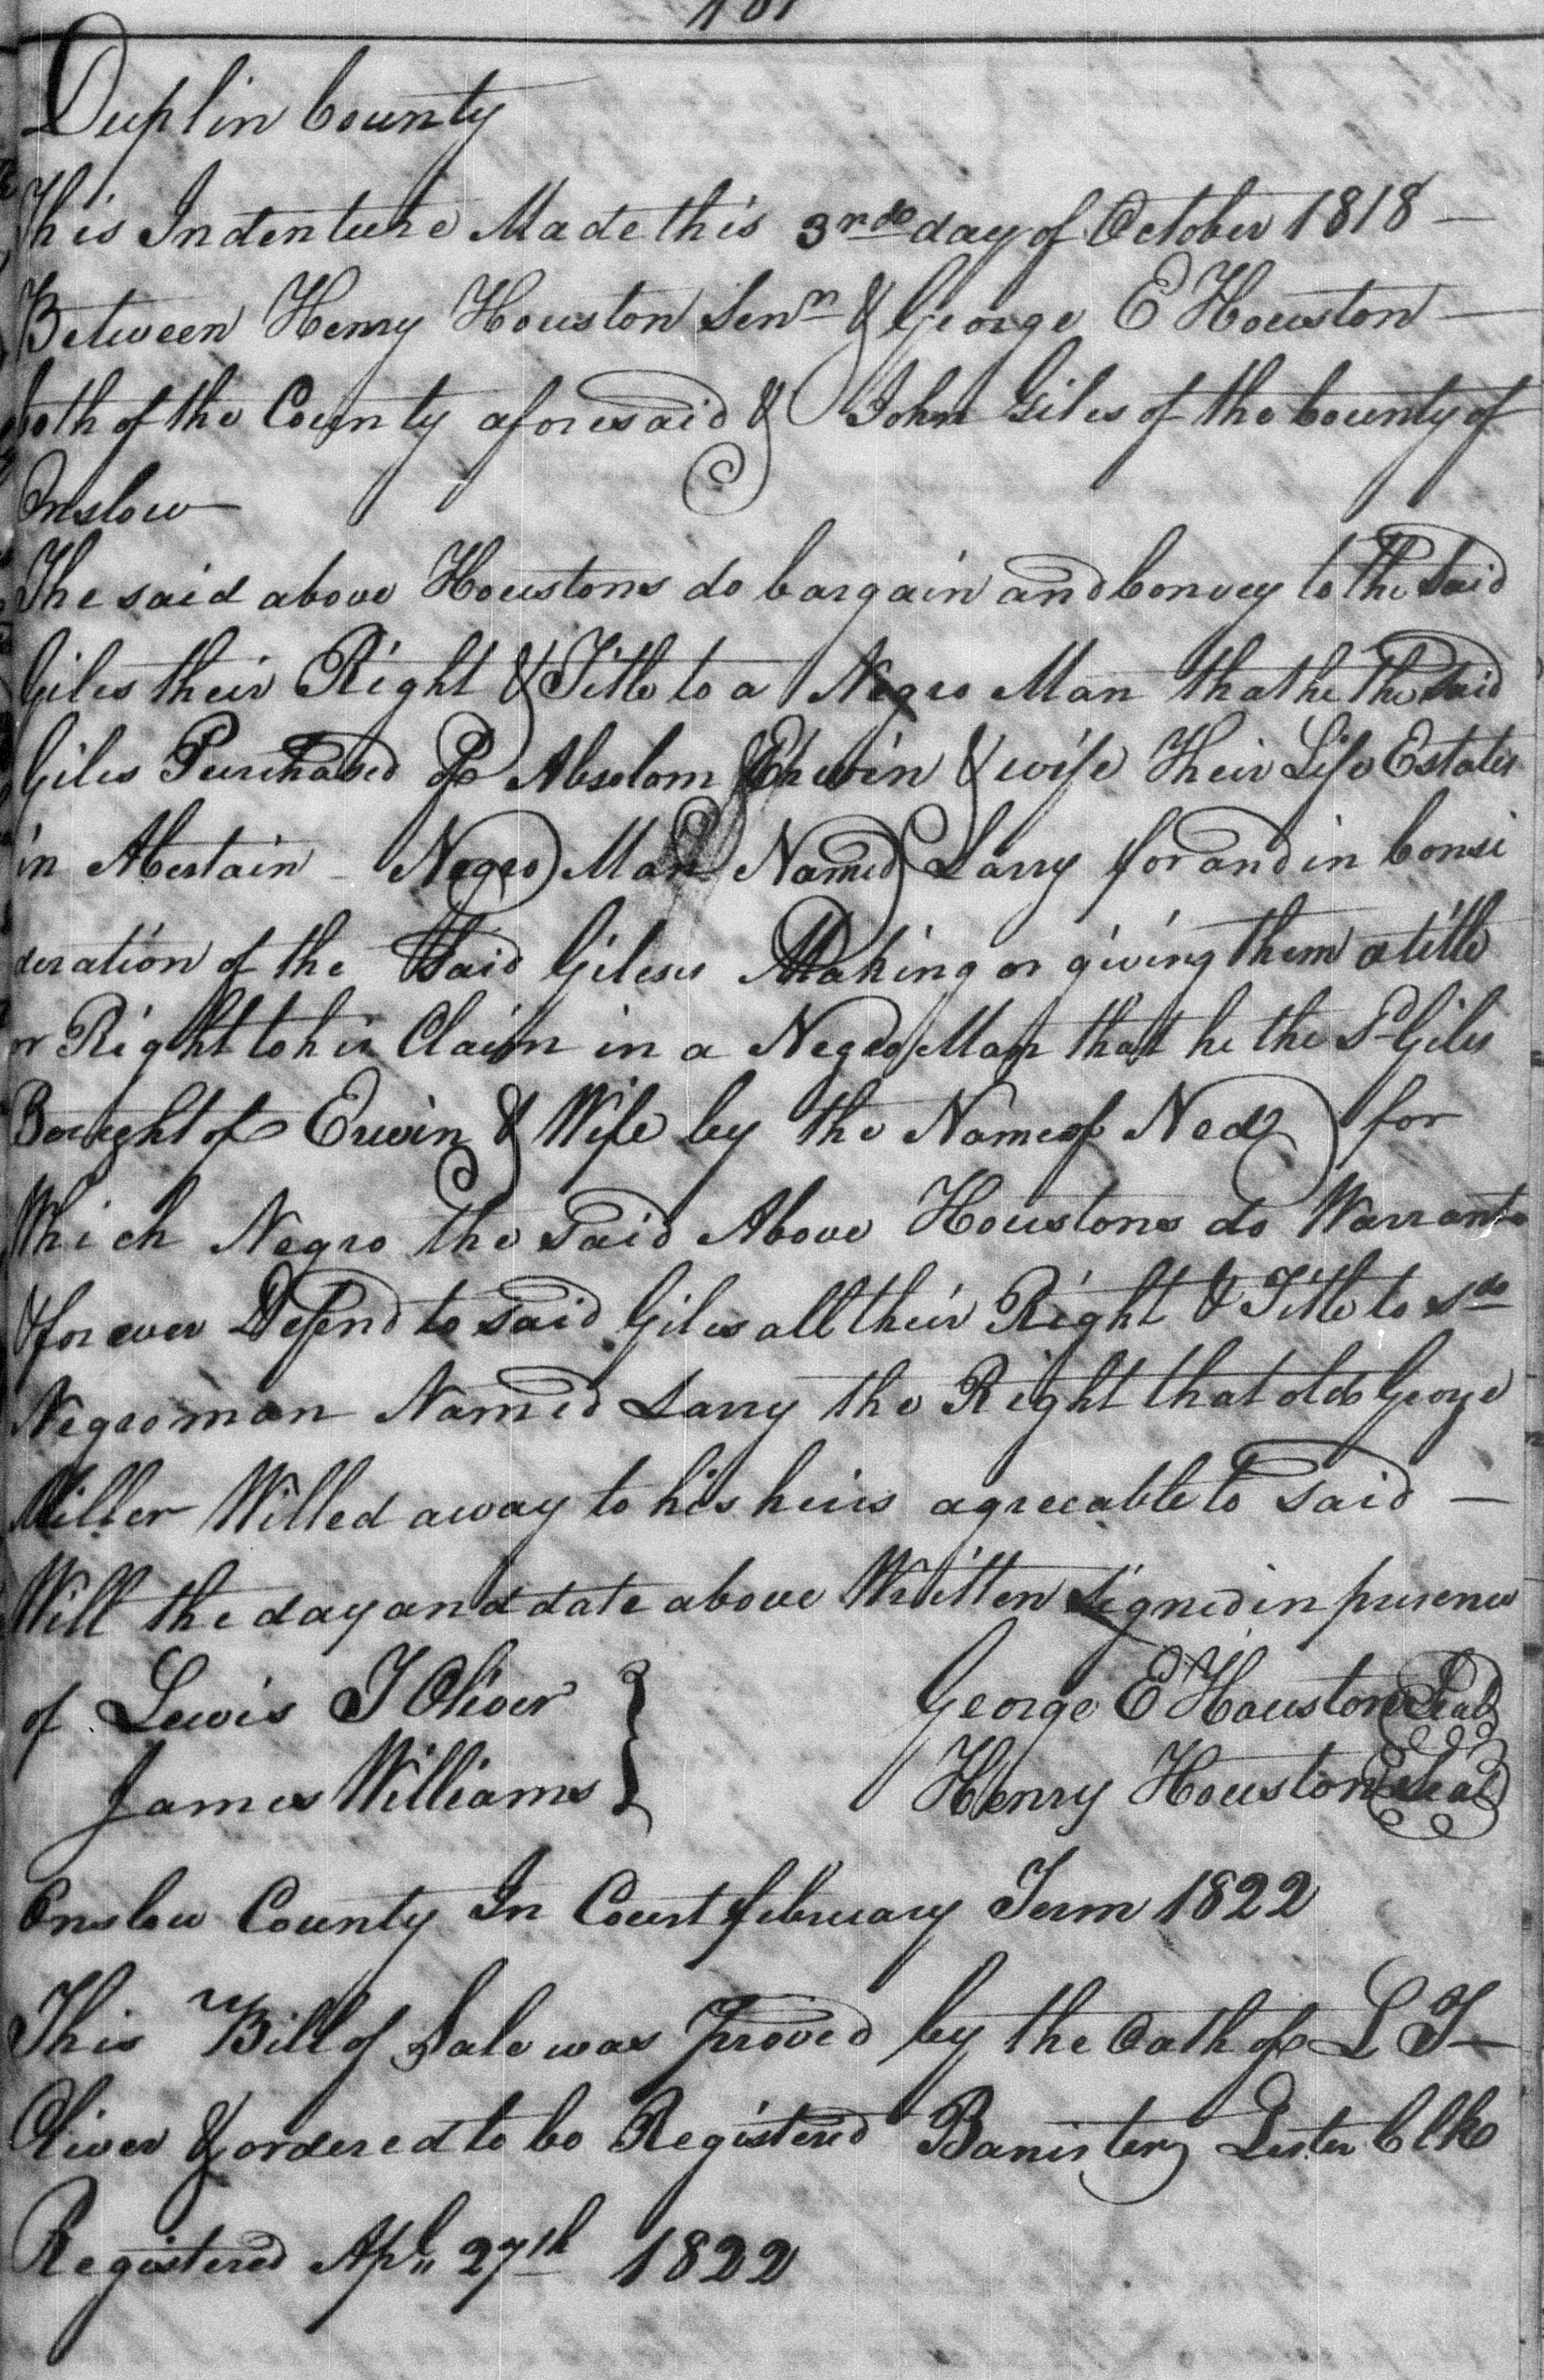 Duplin County
This Indenture Made this 3rd day of October 1818 —
Between Henry Houston Senr & George E Houston —
both of the County aforesaid & John Giles of the County of
Onslow —
The said above Houstons do bargain and Convey to the Said
Giles their Right & Title to a Negro Man that he the Said
Giles Purchased of Absolom Erwin & wife Their Life Estates
in A Certain - Negro Man Named Larry for and in Consi
deration of the Said Gileses Making or giving them a title
or Right to his Claim in a Negro Man that he the Sd Giles
Bought of Erwin & Wife by the Name of Ned for
Which Negro the Said Above Houstons do Warrant
& forever Defend to said Giles all their Right & Title to sd
Negro man Named Larry the Right that old George
Miller Willed away to his heirs agreeable to said —
Will the day and date above Written Signed in presence
of Lewis T Oliver } George E Houston Seal
James Williams } Henry Houston Seal
Onslow County In Court february Term 1822
This Bill of Sale was proved by the Oath of L T —
Oliver & ordered to be Registered Banister Lester Clk
Registered Apl 27th 1822